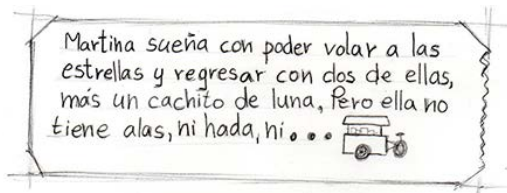 Martina sueña con poder volar a las
estrellas y regresar con dos de ellas,
más un cachito de luna, Pero ella no
tiene alas, ni hada, ni...